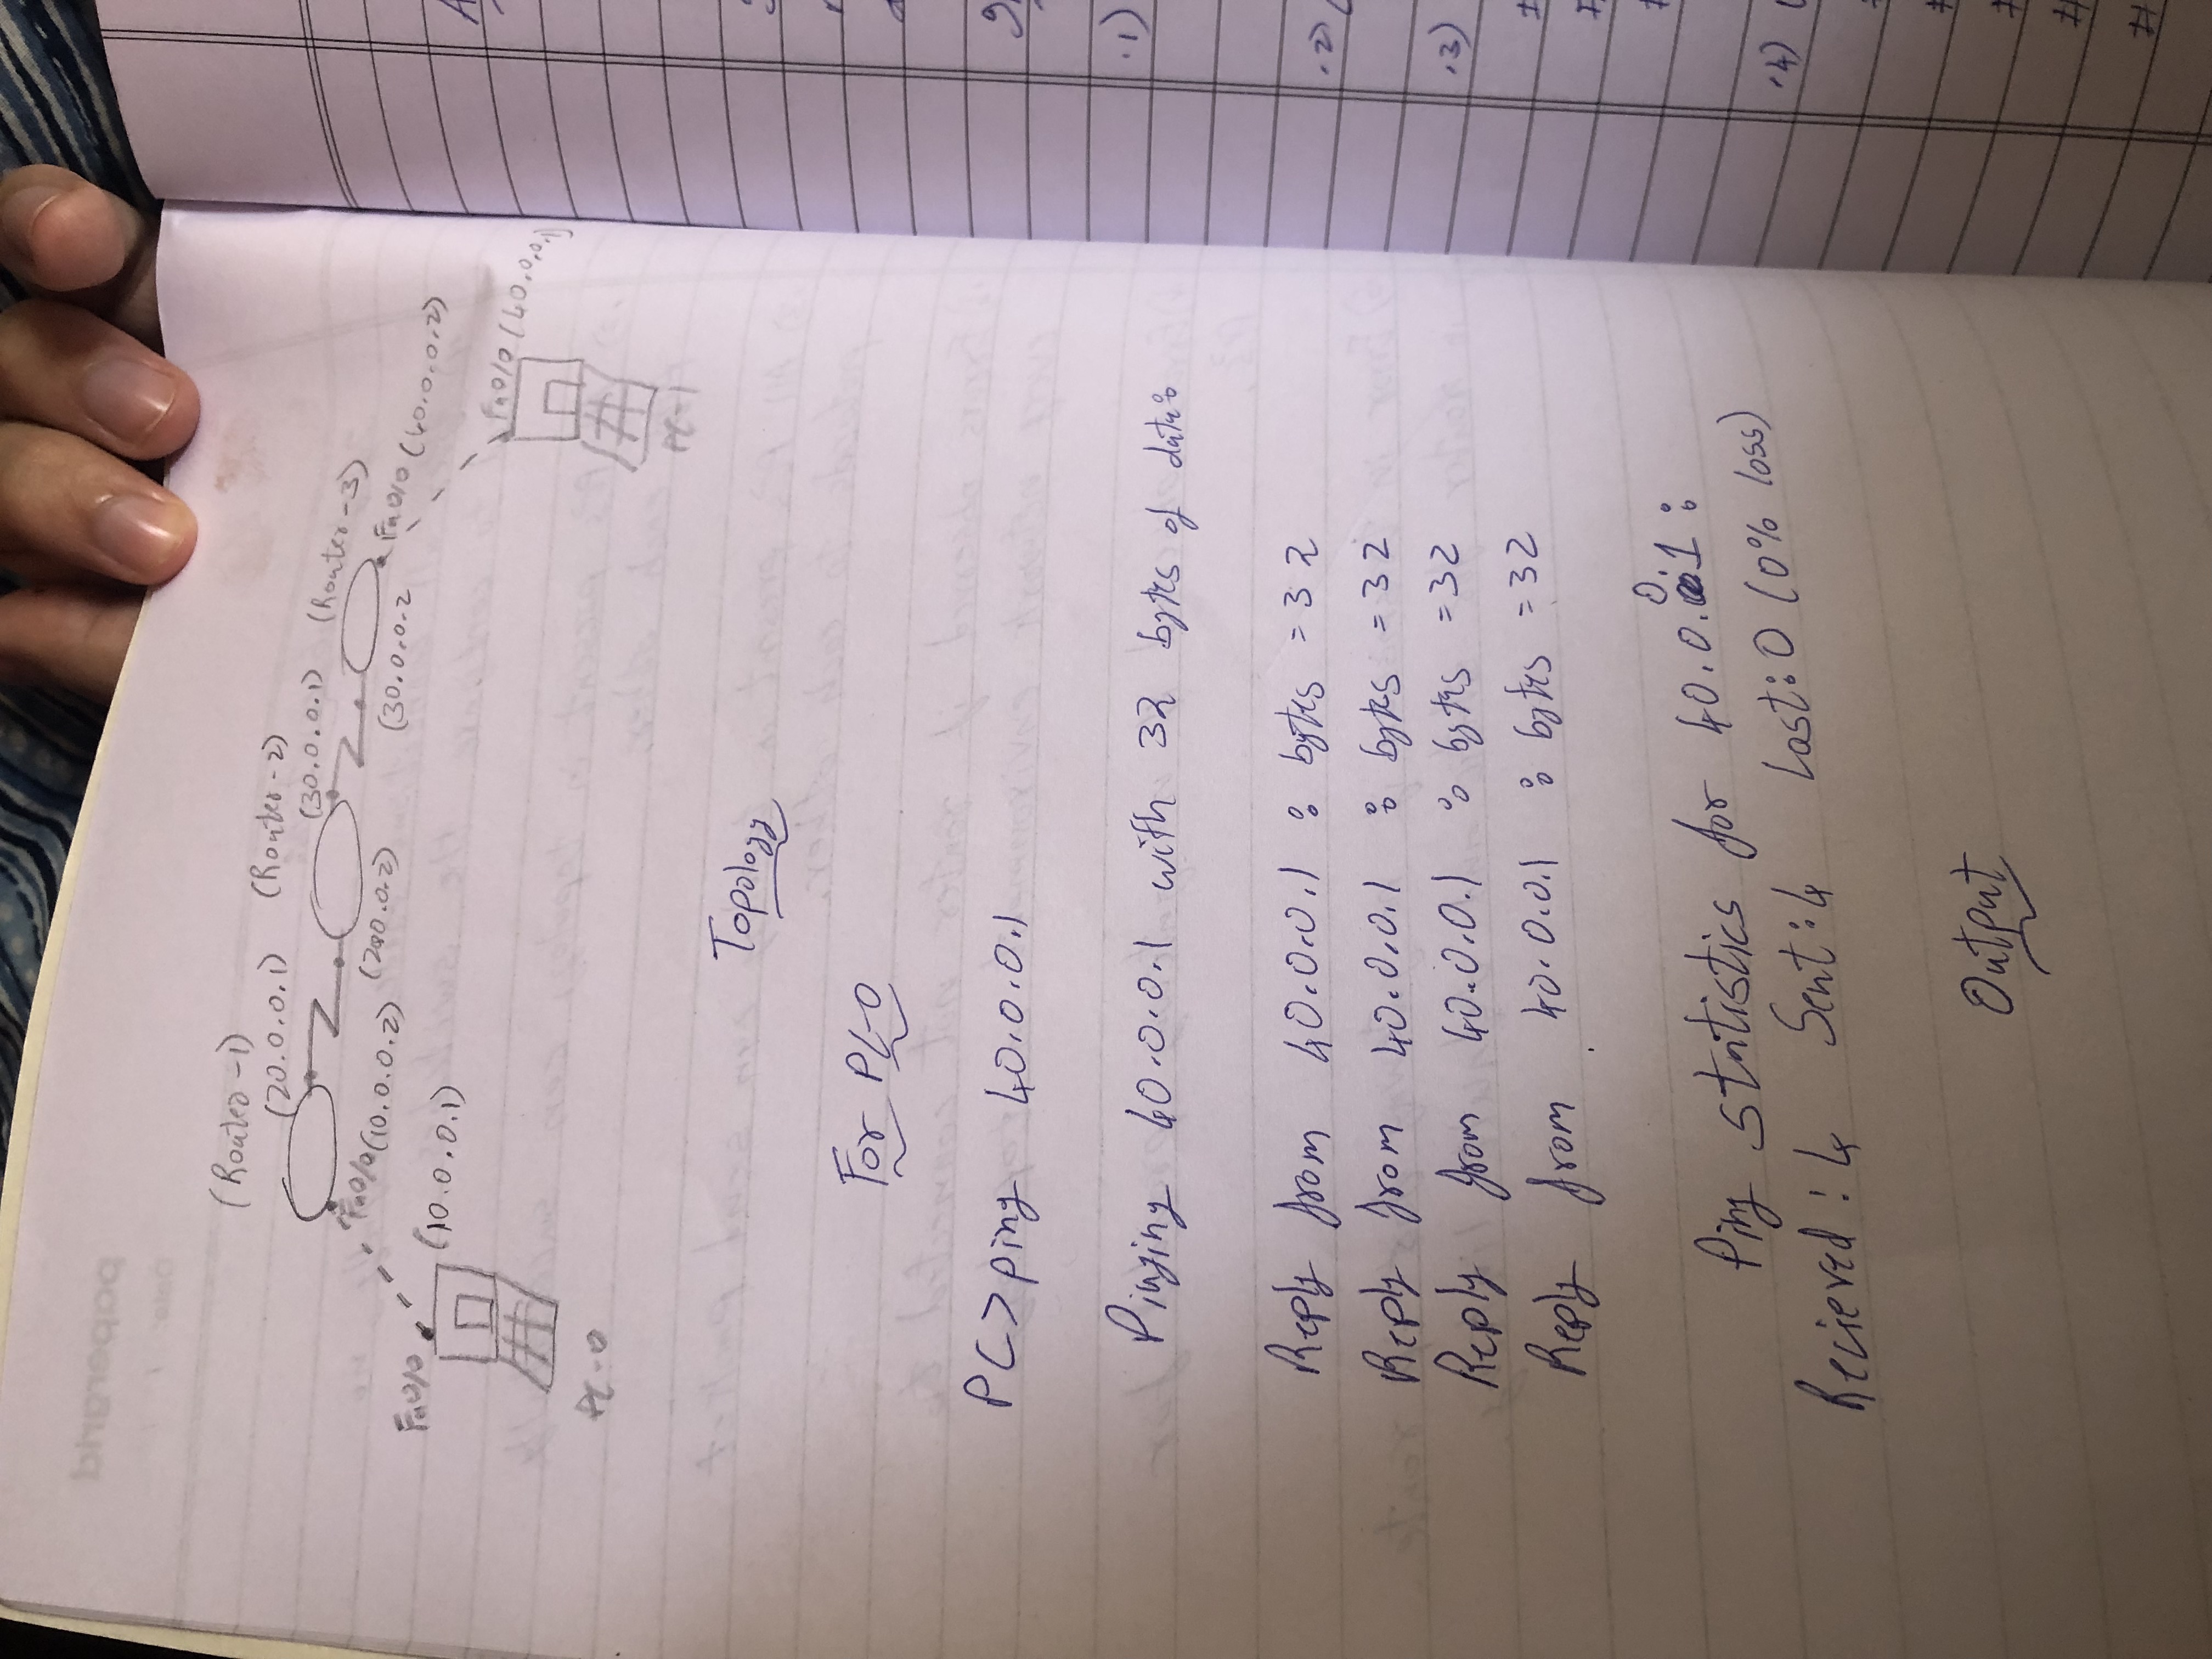 papergrid
Date: / /
(Router-1)
(20.0.0.1) (Router-2)
(30.0.0.1) (Router-3)
Fa0/0 (10.0.0.2) (20.0.0.2) (30.0.0.2 Fa0/0 (40.0.0.2)
Fa0/0 (10.0.0.1)
Fa0/0 (40.0.0.1)
PC-0
PC-1
Topology
For PC-0
PC>ping 40.0.0.1
Pinging 40.0.0.1 with 32 bytes of data:
Reply from 40.0.0.1 : bytes =32
Reply from 40.0.0.1 : bytes =32
Reply from 40.0.0.1 : bytes =32
Reply from 40.0.0.1 : bytes =32
Ping statistics for 40.0.0.1 :
Recieved : 4 Sent : 4 Lost : 0 (0% loss)
Output
.1)
.2)
.3)
.4)